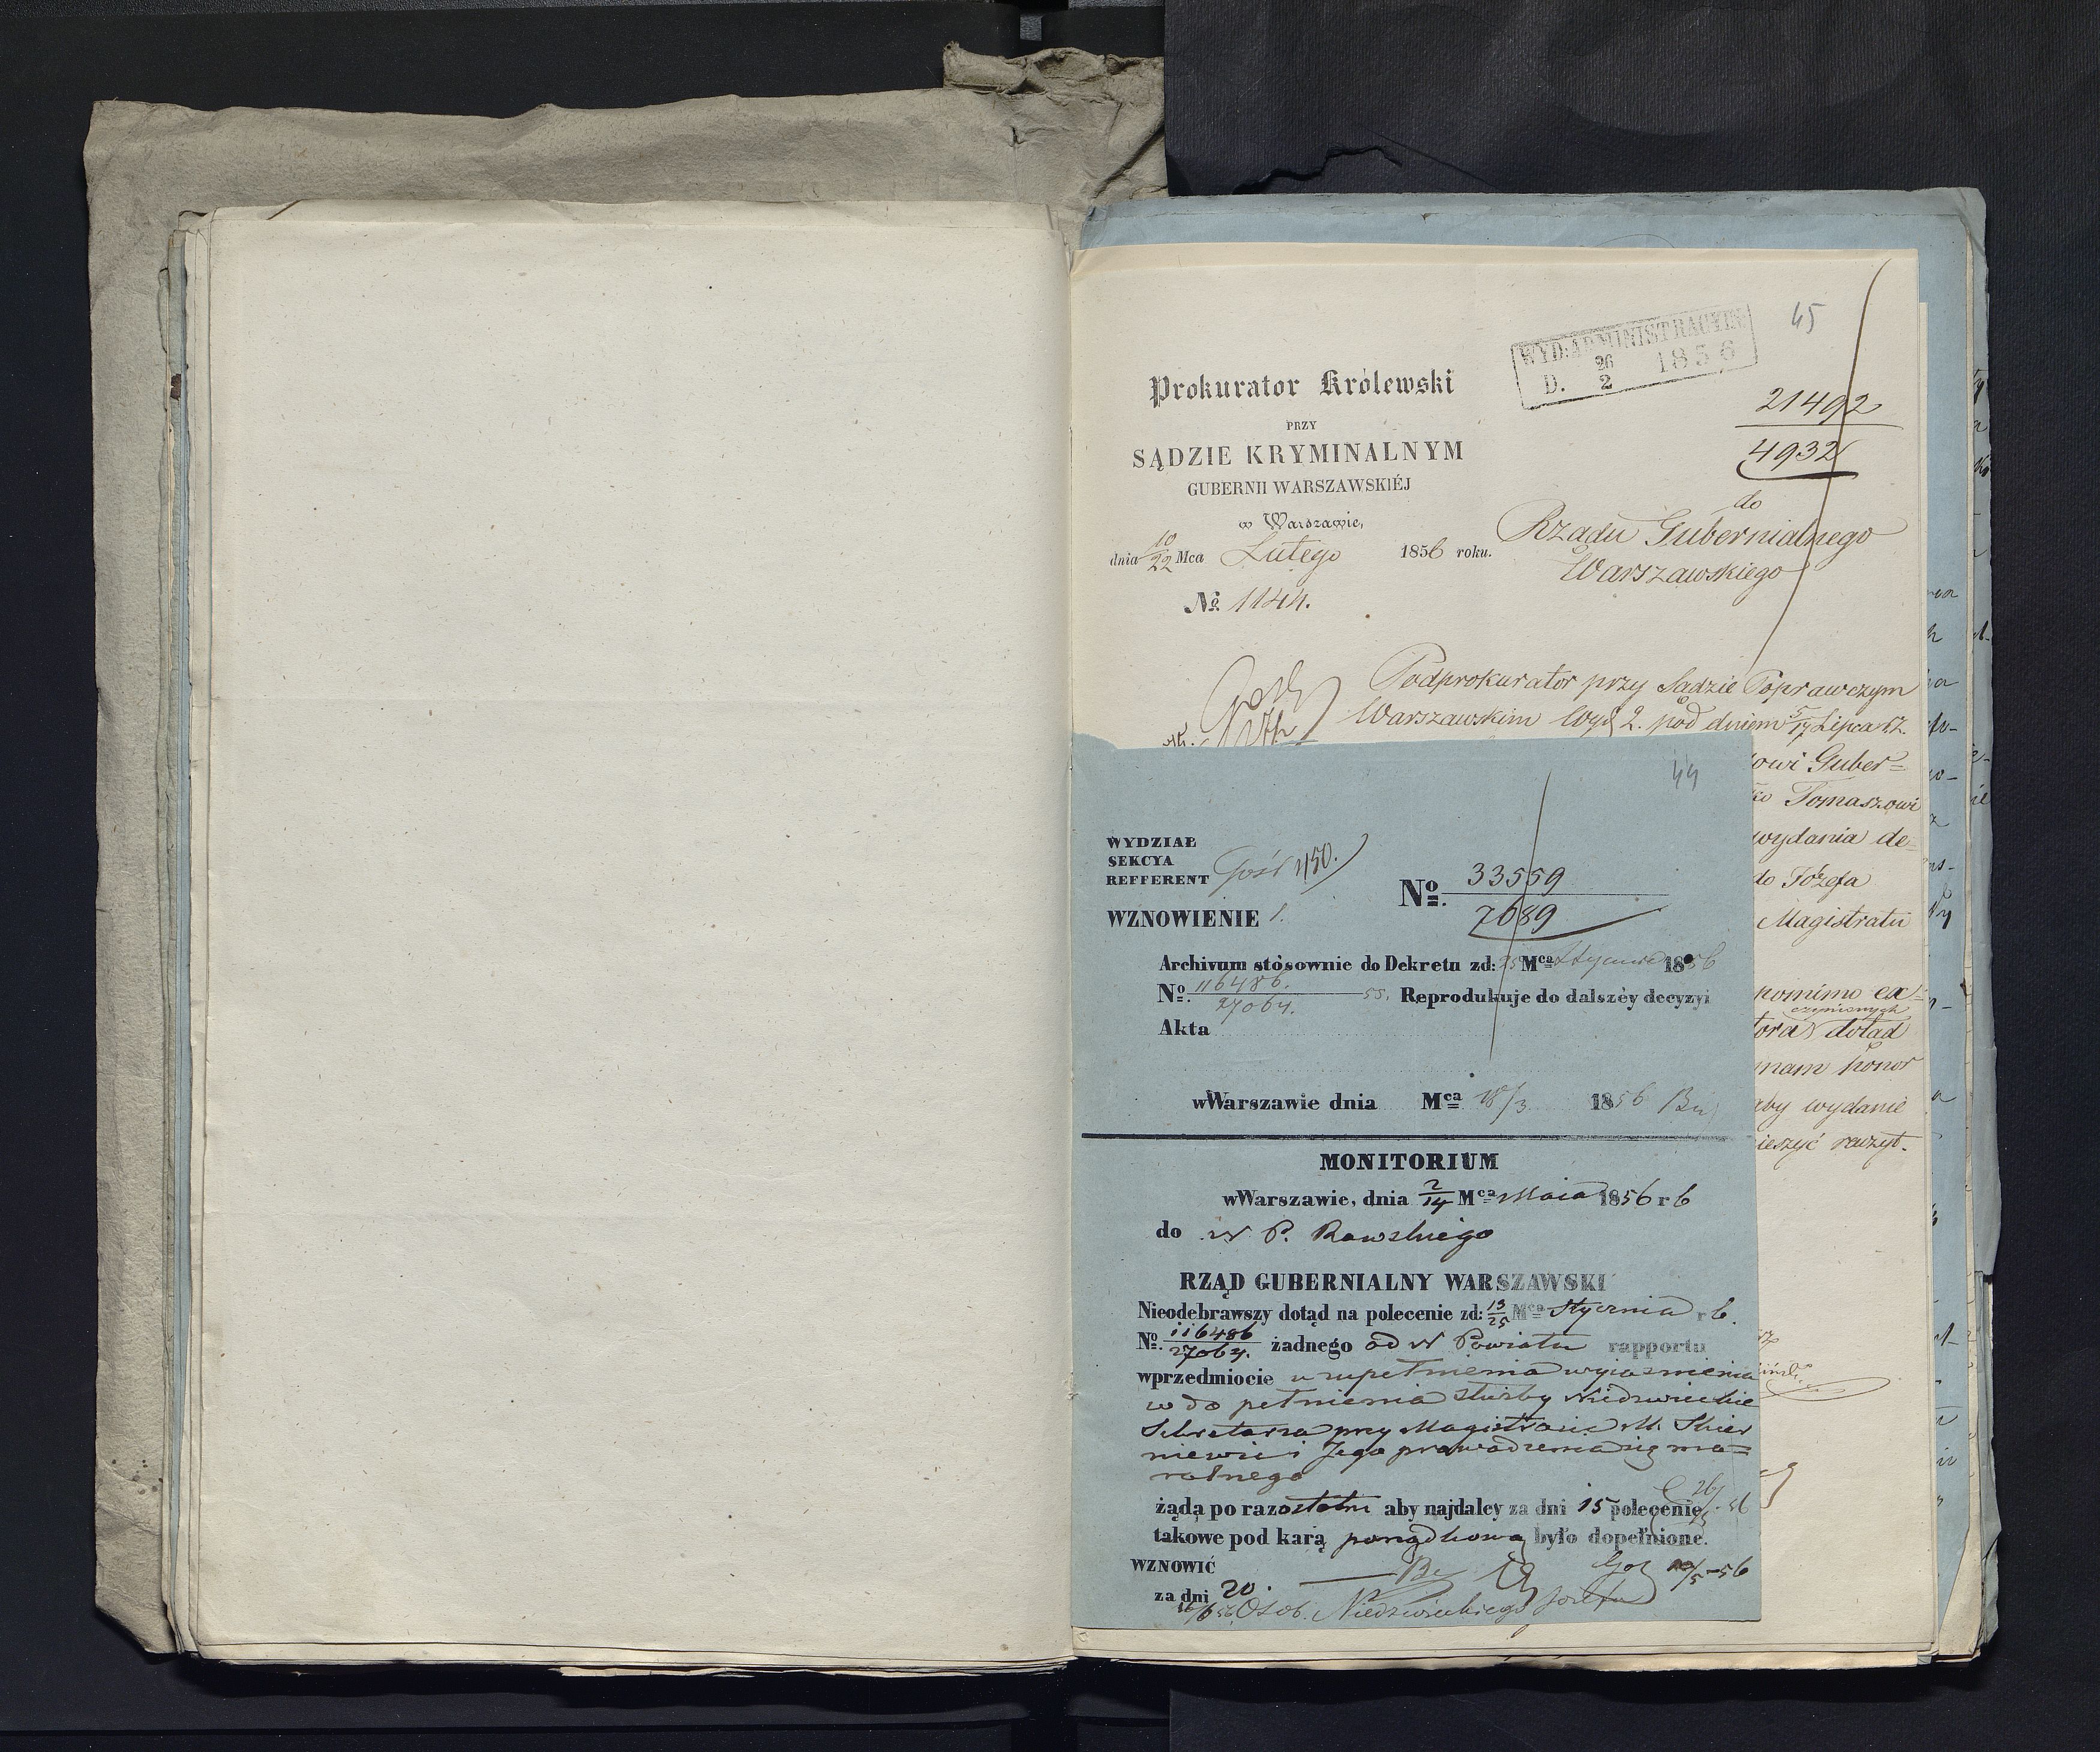 45
WYD: ADMINISTRACYJN:
D. 26/2 1856
21492
4932
Prokurator Królewski
PRZY
SĄDZIE KRYMINALNYM
GUBERNII WARSZAWSKIÉJ
w Warszawie,
dnia 10/22 Mca Lutego 1856 roku.
No 1144.
do
Rządu Gubernialnego
Warszawskiego
Podprokurator przy Sądzie Poprawczym
Warszawskim Wyd. 2. pod dniem 5/17 Lipca r.z.
owi Guber=
Tomaszowi
wydania de=
do Józefa
Magistratu
pomimo
czynionych
dotąd
mam honor
aby wydanie
ieszyć raczył.
44
WYDZIAŁ
SEKCYA
REFFERENT
WZNOWIENIE 1.
No. 33559
7689
Archivum stósownie do Dekretu zd: 25 Mca Stycznia 1856
No. 116486.
27064. 55. Reprodukuje do dalszéy decyzyi
Akta
w Warszawie dnia Mca 18/3 1856
MONITORIUM
w Warszawie, dnia 2/14 Mca Maia 1856 r 6
do N P. Rawskiego
RZĄD GUBERNIALNY WARSZAWSKI
Nieodebrawszy dotąd na polecenie zd: 13/25 Mca Stycznia r 6.
No. 116486
27064. żadnego od N Powiatu rapportu
w przedmiocie uzupełnienia wyjaśnienia
w do pełnienia służby Niedzwieckie
Sekretarza przy Magistracie M. Skier
niewic i Jego prowadzenia się mo=
ralnego
żąda po raz ostatni aby najdaley za dni 15 polecenie
takowe pod karą porządkową było dopełnione.
WZNOWIĆ
za dni 20.
Osob. Niedzwieckiego Józefa